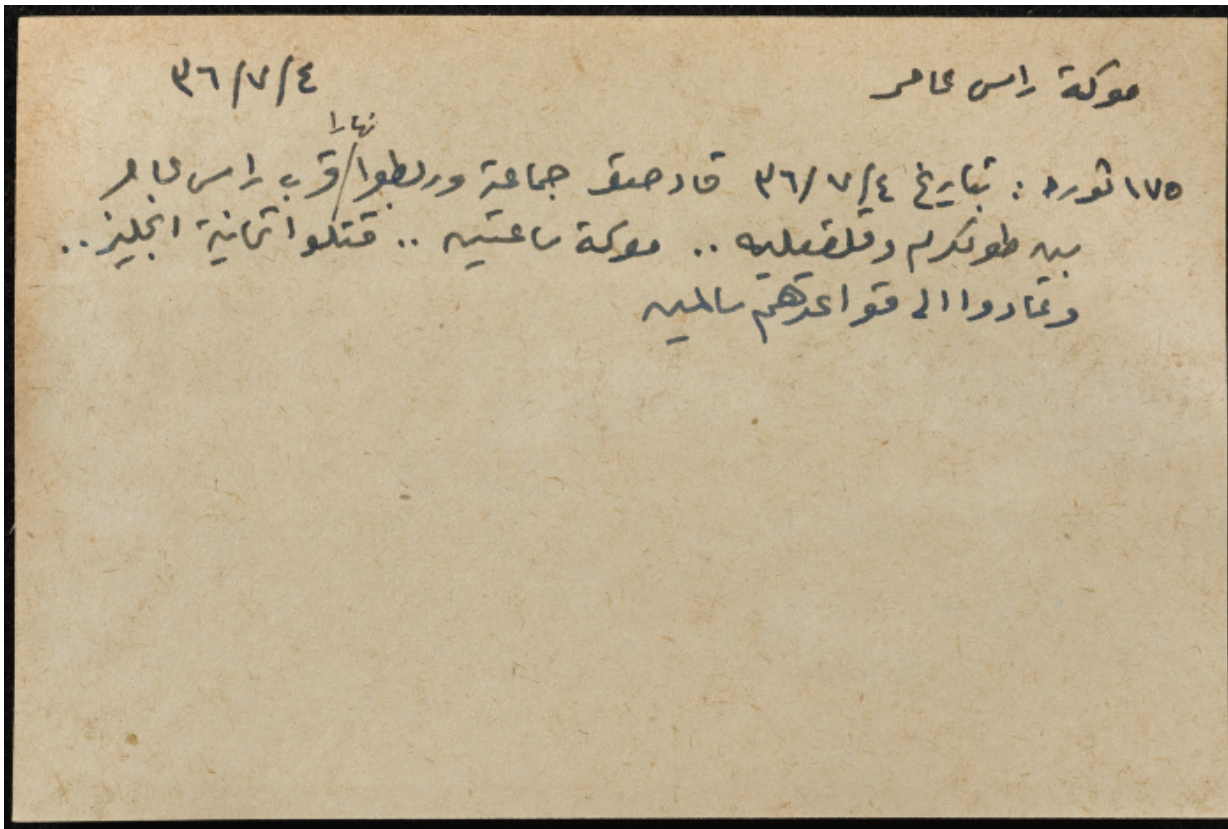 معركة راس عامر
٣٦/٧/٤
١٧٥ ثورة : بتاريخ ٣٦/٧/٤ قاد جماعة وربطوا نهارا قرب راس عامر
بين طولكرم وقلقيليه .. معركة ساعتين .. قتلوا ثمانية انجليز ..
وعادوا الى قواعدهم سالمين